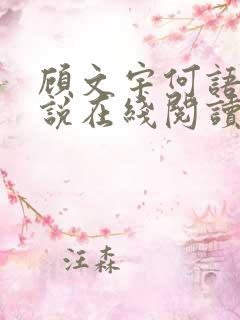 顾文宇何語
說在綫閱讀
汪森